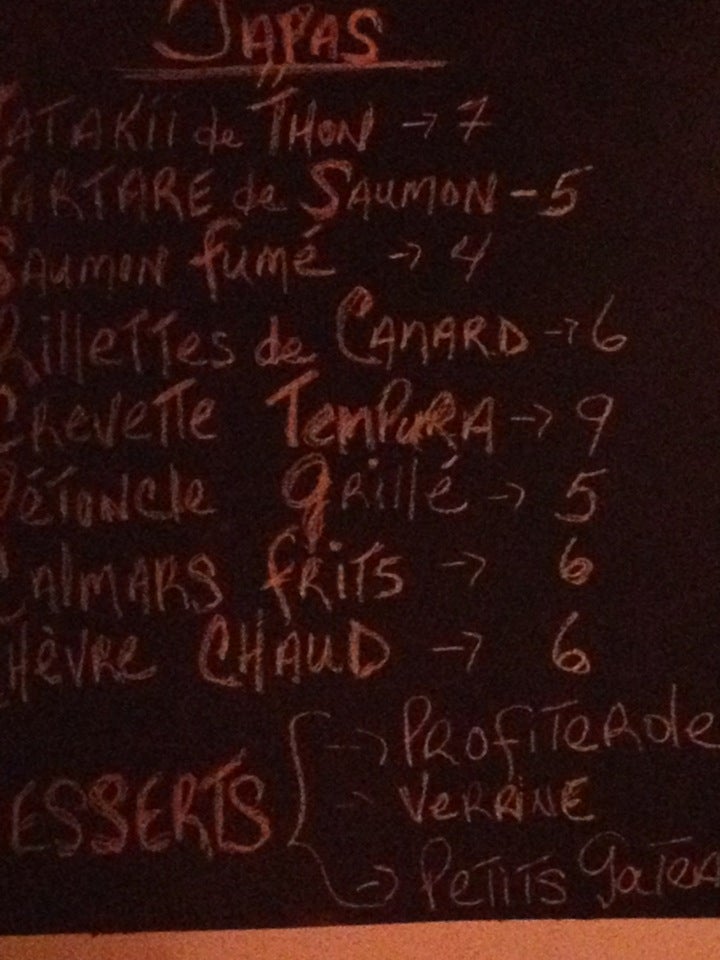 TAPAS
TATAKII de THON → 7
TARTARE de SAUMON - 5
SAUMON fumé → 4
Rillettes de CANARD → 6
CREVETTE TEMPURA → 9
PéTONCLE grillé → 5
CALMARS fRITS → 6
CHÈVRE CHAUD → 6
DESSERTS
→ PROfITEROLE
→ VERRINE
→ PETITS gaTEA